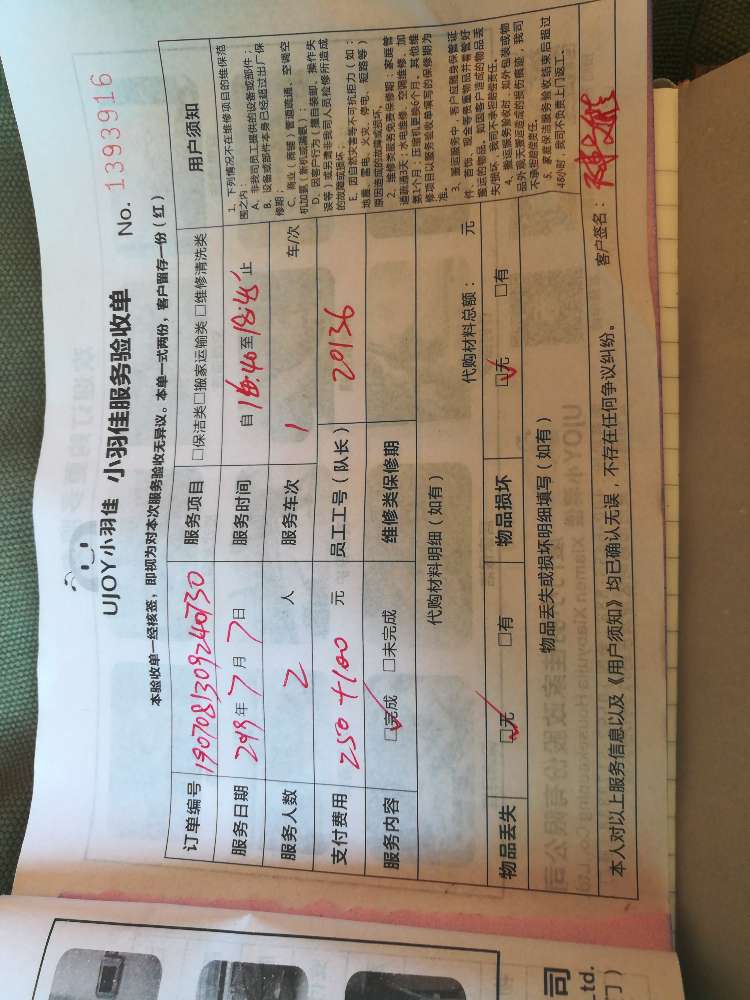 UJOY小羽佳 小羽佳服务验收单
No. 1393916
本验收单一经核签，即视为对本次服务验收无异议。本单一式两份，客户留存一份（红）
订单编号 190708130924073O 服务项目 □保洁类□搬家运输类□维修清洗类
服务日期 2019年7月7日 服务时间 自16:40至18:45止
服务人数 2 人 服务车次 1 车/次
支付费用 250+100 元 员工工号（队长） 20136
服务内容 □完成 □未完成 维修类保修期
代购材料明细（如有） 代购材料总额： 元
物品丢失 □无 □有 物品损坏 □无 □有
物品丢失或损坏明细填写（如有）
本人对以上服务信息以及《用户须知》均已确认无误，不存在任何争议纠纷。 客户签名：
用户须知
1、下列情况不在维修项目的维保范
围之内：
A、非我司员工提供的设备或部件；
B、设备或部件本身已经超过出厂保
修期；
C、商业（商铺）管道疏通、空调空
机加氟（新机或漏氟）；
D、因客户行为（擅自装卸、操作失
误等）或另请非我司人员检修所造成
的故障或损坏；
E、因自然灾害等不可抗拒力（如：
地震、雷电、火灾、停电、短路等）
原因造成的故障或损坏。
2、维修类服务免费保修期：家庭管
道疏通3天，水电维修、空调维修、加
氨1个月；压缩机更换6个月。其他维
修项目以服务验收单填写的保修期为
准。
3、搬运服务中，客户应随身保管证
件、首饰、现金等贵重物品并看管好
搬运的物品。如因客户造成的物品丢
失/损坏，我司不承担赔偿责任。
4、搬运服务验收时，如外包装或物
品外观无搬运造成的损伤痕迹，我司
不承担赔偿责任。
5、家庭保洁服务验收结束后超过
48小时，我司不负责上门返工。
司
td.
门）